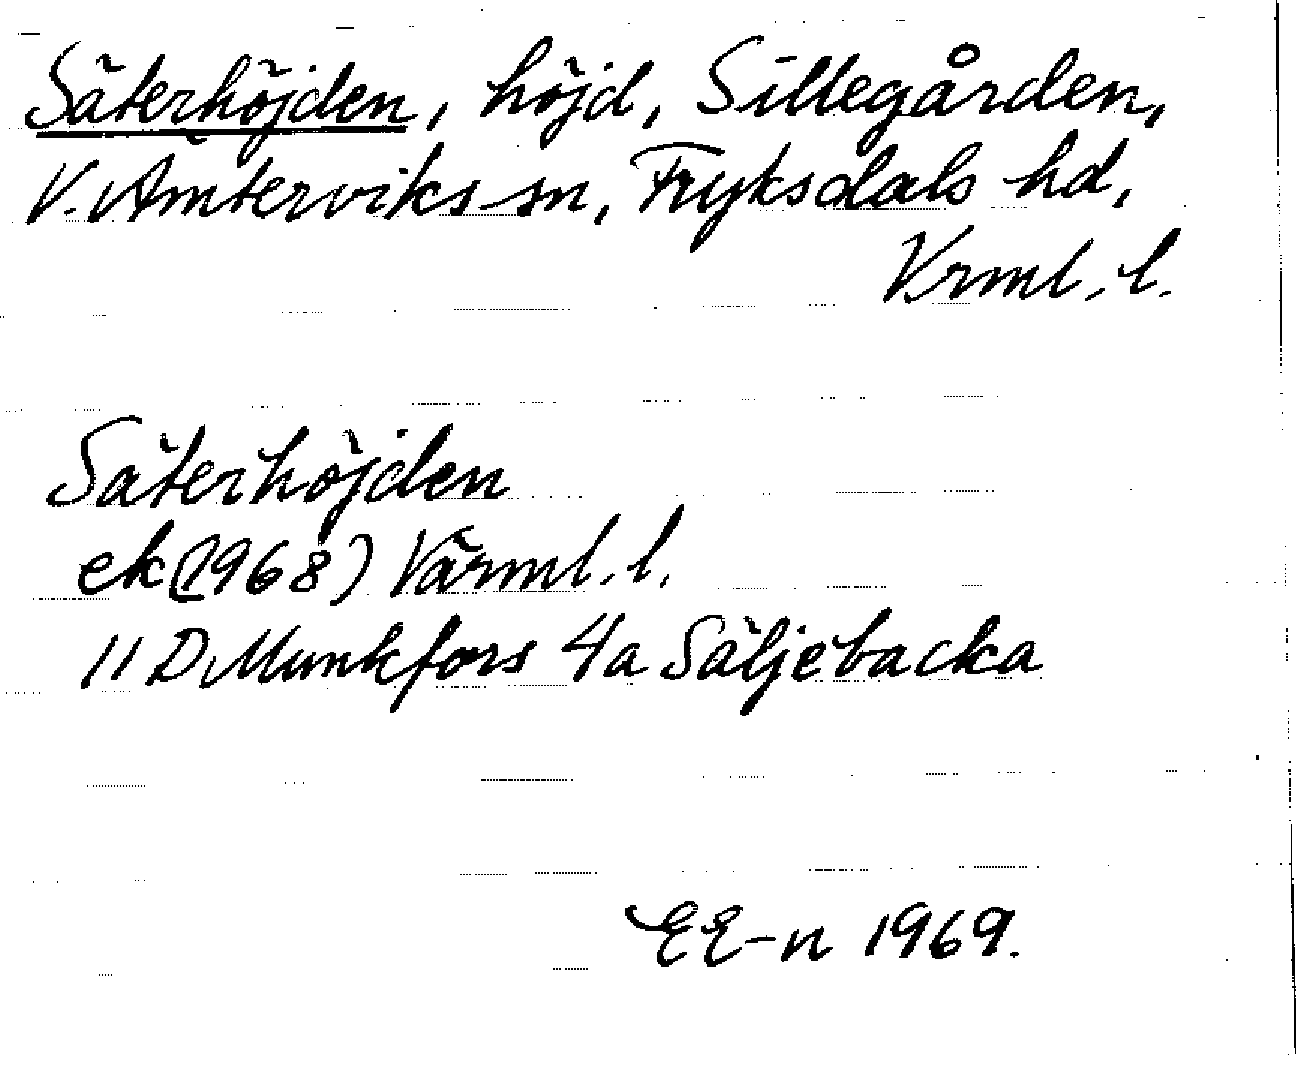 Säterhöjden, höjd, Sillegården,
V. Ämterviks sn, Fryksdals hd,
Vrml. l.
Säterhöjden
ek (1968) Värml. l.
11 D Munkfors 4a Säljebacka
EE-n 1969.